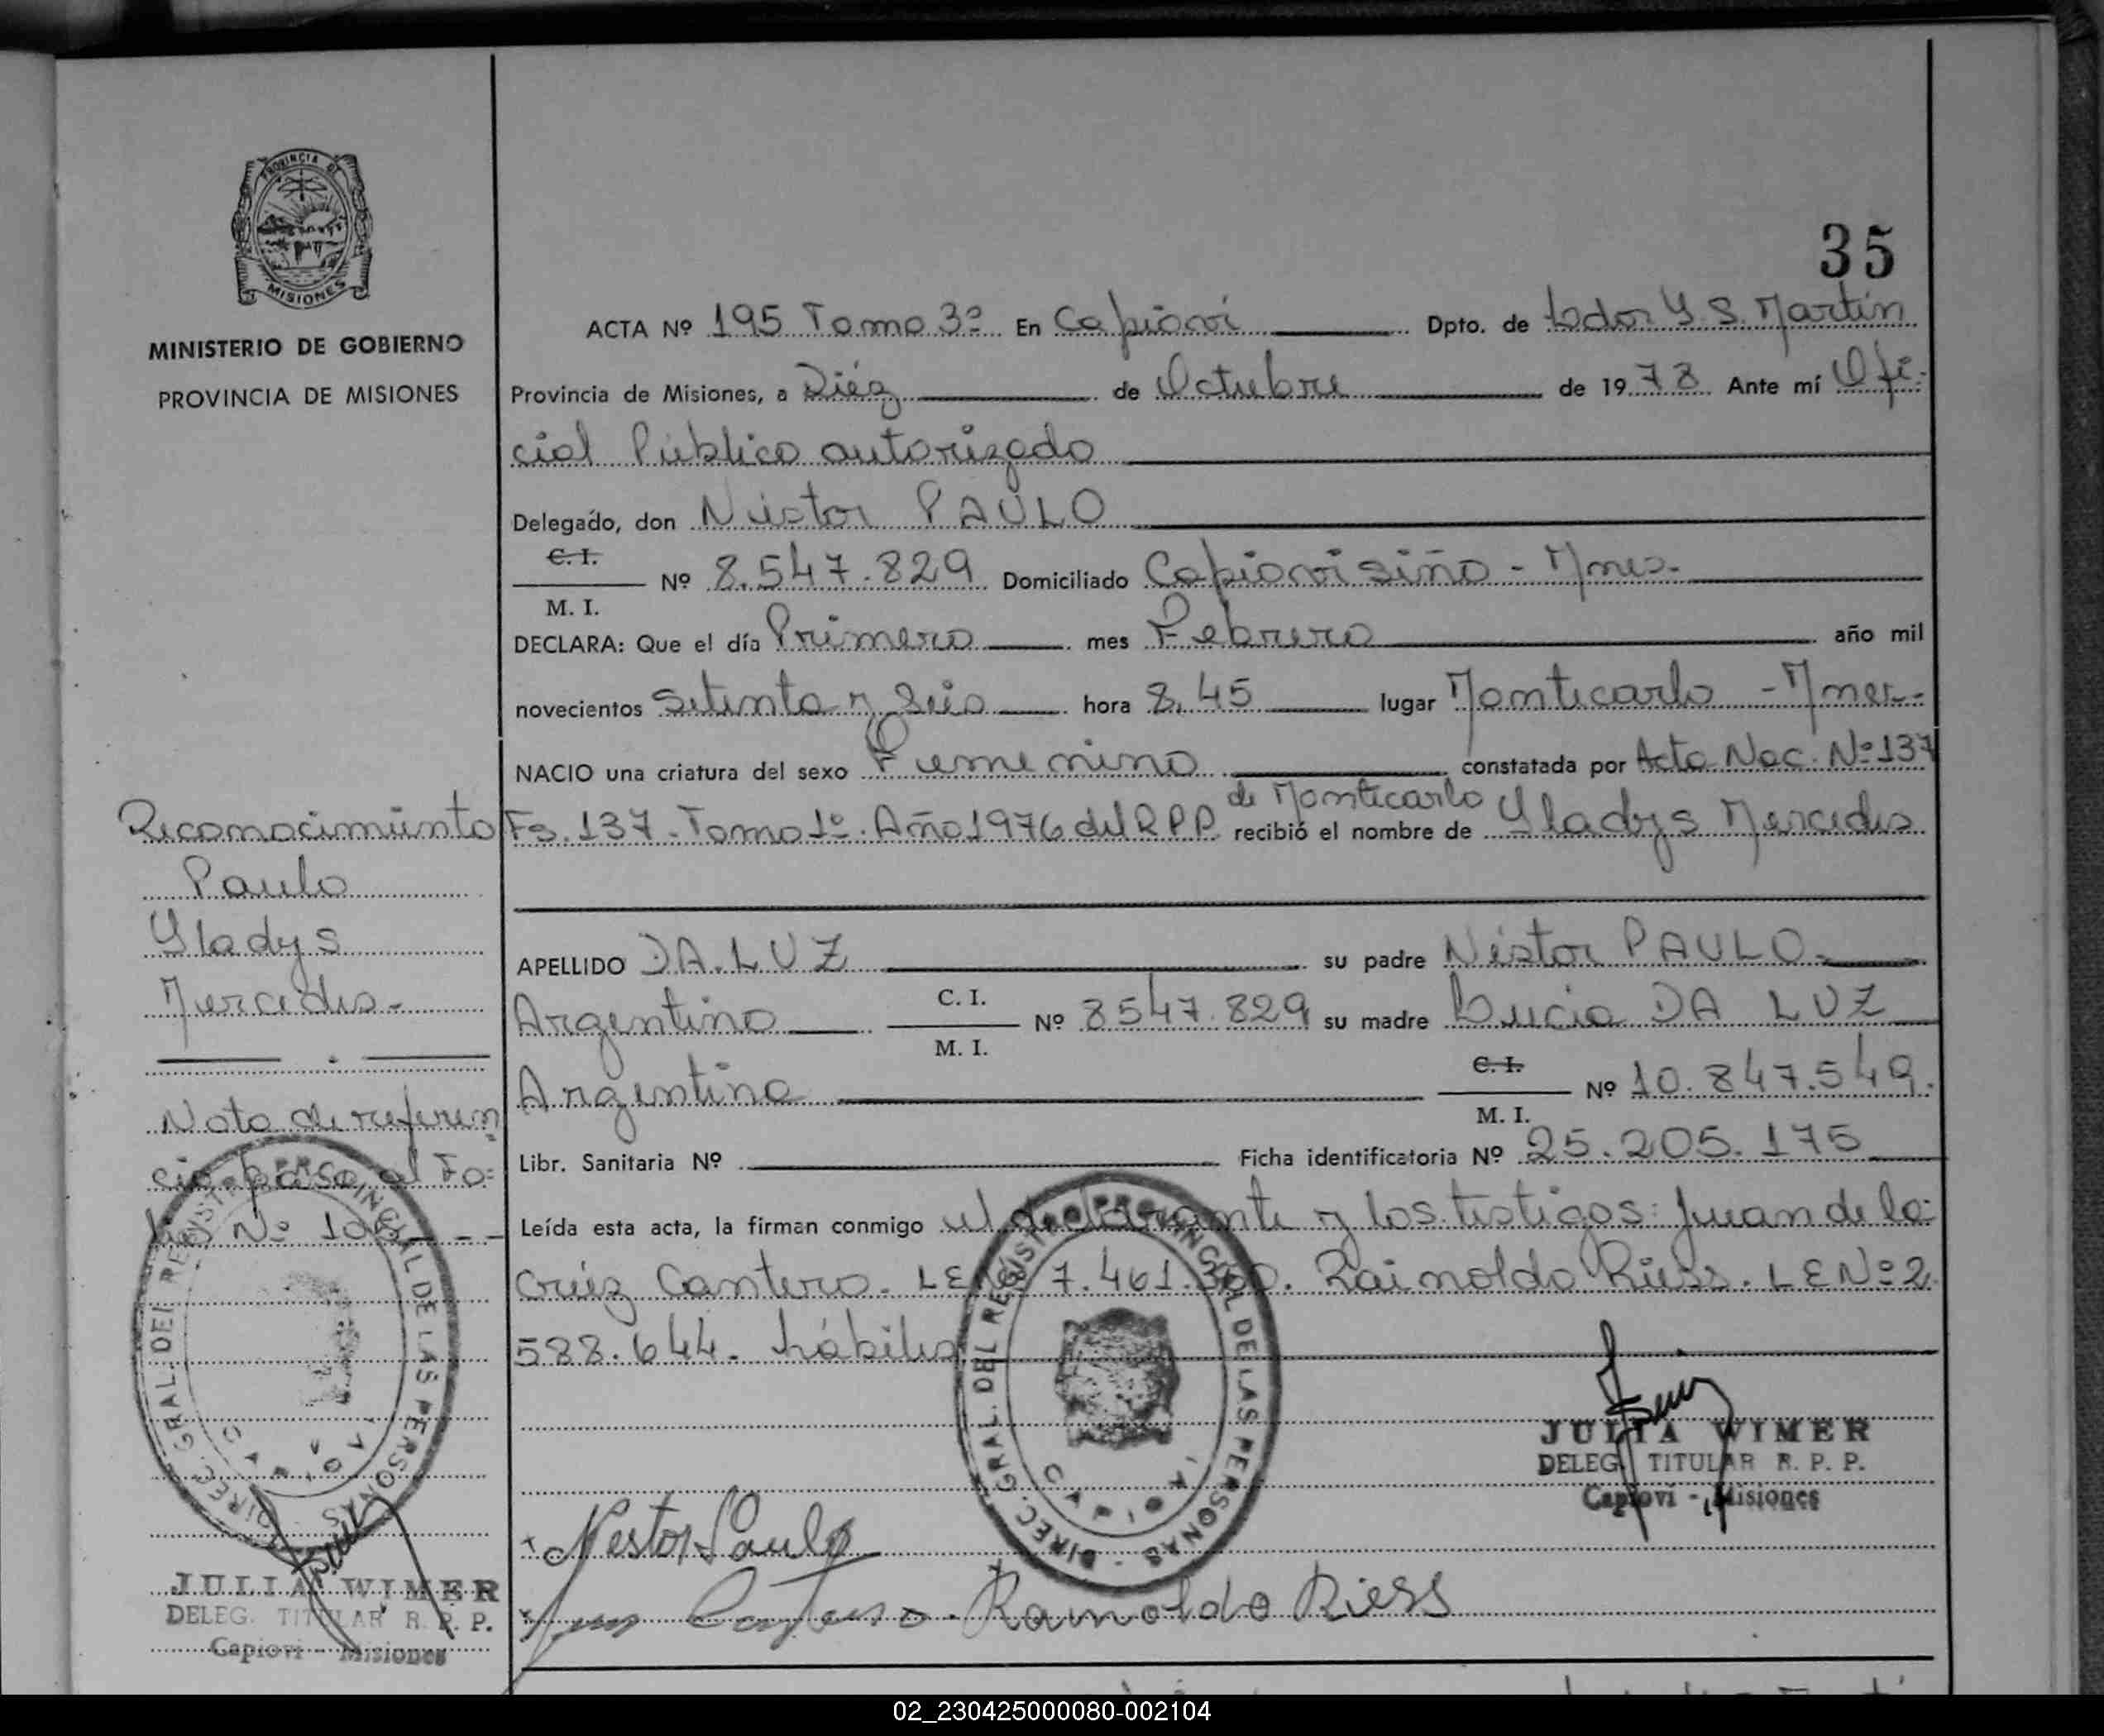 35
PROVINCIA DE
MISIONES
MINISTERIO DE GOBIERNO
PROVINCIA DE MISIONES
ACTA Nº 195 Tomo 3º En Capioví Dpto. de Ldor G. S. Martín
Provincia de Misiones, a Diéz de Octubre de 1978 Ante mí Ofi-
cial Público autorizado
Delegado, don Néstor PAULO
C. I.
M. I. Nº 8.547.829 Domiciliado Capiovisiño - Mnes-
DECLARA: Que el día Primero mes Febrero año mil
novecientos Setenta y Seis hora 8,45 lugar Montecarlo - Mnes-
NACIO una criatura del sexo Femenino constatada por Acta Nac. Nº 137
Fs. 137. Tomo 1º. Año 1976 del R P P de Montecarlo recibió el nombre de Gladys Mercedes
APELLIDO DA LUZ su padre Néstor PAULO
Argentino C. I. M. I. Nº 8547.829 su madre Lucia DA LUZ
Argentina C. I. M. I. Nº 10.847.549.
Libr. Sanitaria Nº Ficha identificatoria Nº 25.205.175
Leída esta acta, la firman conmigo el declarante y los testigos: Juan de la
Cruz Cantero. LE Nº 7.461. Rainoldo Riess. LE Nº 2
588.644. hábiles
Reconocimiento
Paulo
Gladys
Mercedes-
Nota de referen
cia paso al Fo-
lio Nº
DIREC. GRAL. DEL REGISTRO PROVINCIAL DE LAS PERSONAS
CAPIOVI
DIREC. GRAL. DEL REGISTRO PROVINCIAL DE LAS PERSONAS
CAPIOVI
JULIA WIMER
DELEG. TITULAR R. P. P.
Capiovi - Misiones
Nestor Paulo
Juan Cantero. Rainoldo Riess
JULIA WIMER
DELEG. TITULAR R. P. P.
Capiovi - Misiones
02_230425000080-002104